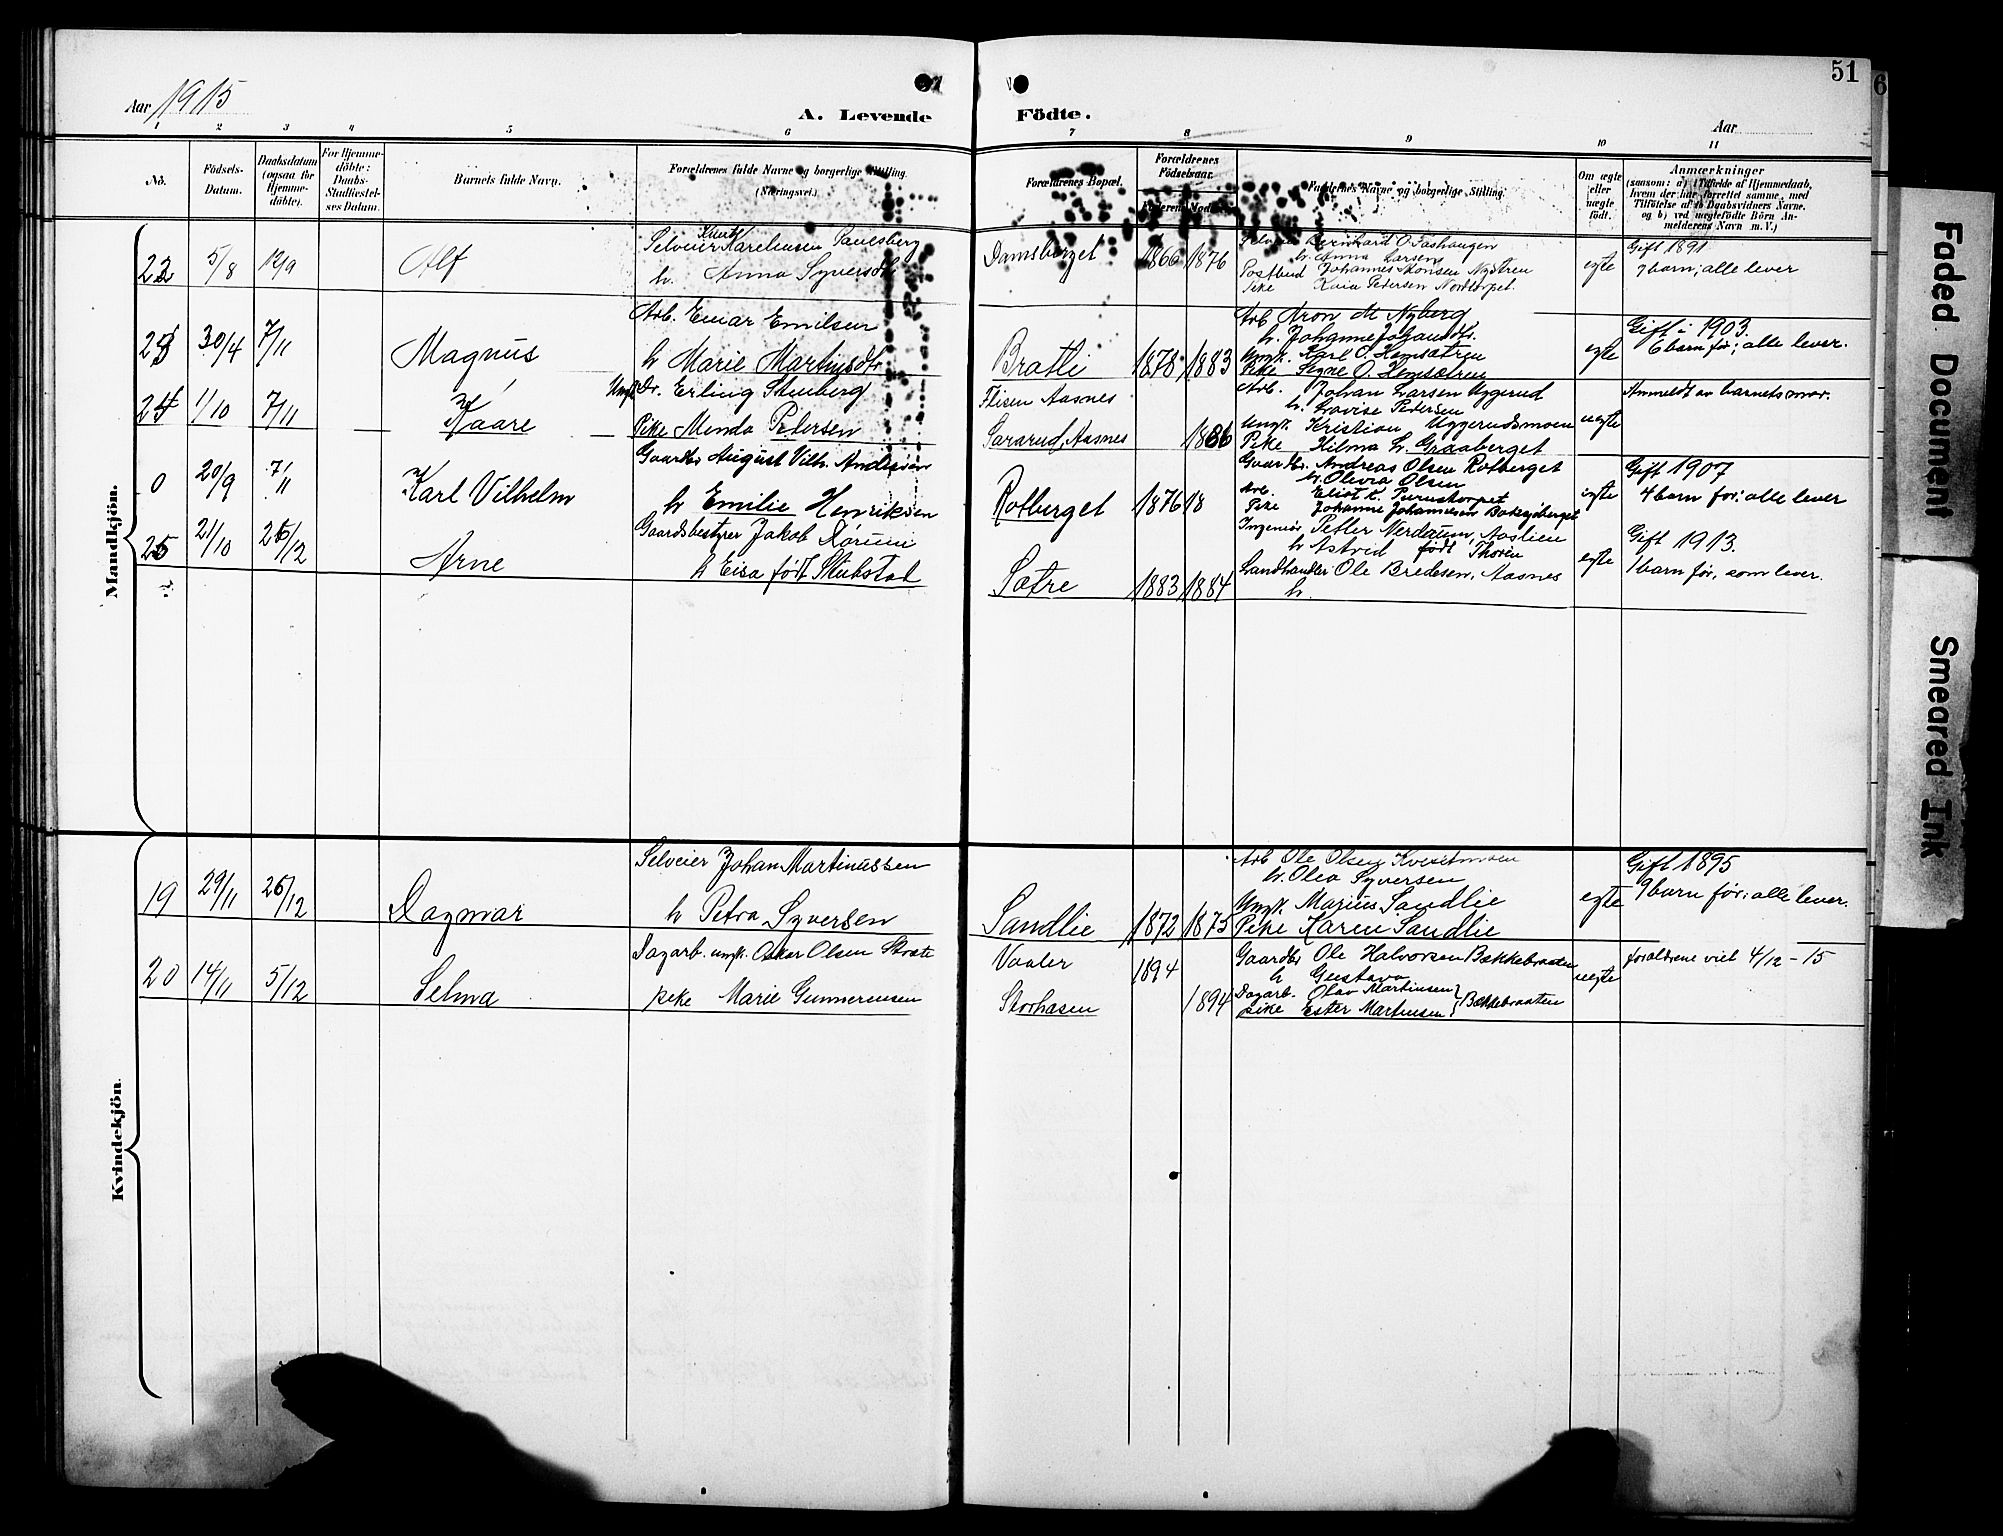 51
Aar 1915
A. Levende Födte.
Aar
1 2 3 4 5 6 7 8 9 10 11
No.
Födsels-Datum.
Daabsdatum (ogsaa for Hjemmedöbte).
For Hjemmedöbte: Daabs-Stadfæstelses Datum.
Barnets fulde Navn.
Forældrenes fulde Navne og borgerlige Stilling. (Næringsvei.)
Forældrenes Bopæl.
Forældrenes Födselsaar.
Faderens Moderens
Faddernes Navne og borgerlige Stilling.
Om ægte eller uægte födt.
Anmærkninger
(saasom: a) i Tilfælde af Hjemmedaab,
hvem der har forrettet samme, med
Tilföielse af to Daabsvidners Navne.
og b) ved uægtefödte Börn An-
melderens Navn m. V.)
Mandkjön.
22 5/8 12/9 Alf
Selveier Kareliusen Paulsberg
h. Anna Syversdtr
Damsberget 1866 1876
Selveier Bernhard O. Aashaugen
h. Anna Larsen
Postbud Johannes Nystren
Pike Kaia Pedersen Nordtorpet.
egte
Gift 1891
7 barn; alle lever
23 30/4 7/11 Magnus
Arb. Einar Emilsen
h Marie Martinsdtr
Bratli 1878 1883
Arb Aron M Nyberg
h. Johanne Johansdtr.
Ungk. Karl O. Hemsætren
Pike Signe O. Hemsætren
egte
Gift i 1903.
6 barn før; alle lever.
24 1/10 7/11 Kaare
Ungk. Dr. Erling Stenberg
Pike Minda Petersen
Flisen Aasnes
Sararud, Aasnes 1886
Arb. Johan Larsen Uggerud
h. Lovise Pedersen
Ungk. Kristian Uggerudsmoen
Pike Hilma L. Graaberget
uegte
Anmeldt av barnets mor.
0 20/9 7/11 Karl Vilhelm
Gaardbr August Vilh. Andersen
h Emilie Henriksen
Rotberget 1876 18
Gaardbr. Andreas Olsen Rotberget
h. Olivia Olsen
Arb. Eliot K. Purustorpet
Pike Johanne Johannesen
egte
Gift 1907
4 barn før; alle lever
25 21/10 26/12 Arne
Gaardsbestyrer Jakob Kørum
h Eisa født Stubstad
Sætre 1883 1884
Ingeniør Petter Nerdrum, Aaslien
h Astrid født Thorén
Landhandler Ole Bredesen, Aasnes
h.
egte
Gift 1913.
1 barn før, som lever.
Kvindekjön.
19 29/11 26/12 Dagmar
Selveier Johan Martinussen
h Petra Syversen
Sandlie 1872 1875
Arb Ole Olsen Kvesetmoen
h. Olea Syversen
Ungk. Marius Sandlie
Pike Karen Sandlie
egte
Gift 1895
9 barn før; alle lever.
20 14/11 5/12 Selma
Dagarb. ungk. Oskar Olsen
pike Marie Gunnerensen
Vaaler 1894
Storhasen 1894
Gaardbr Ole Halvorsen Bækkebraaten
h Gustava
Dagarb. Olav Martinsen } Bækkebraaten
pike Ester Martinsen
uegte
foraldrene viet 4/12 - 15
Faded Document
Smeared Ink
6